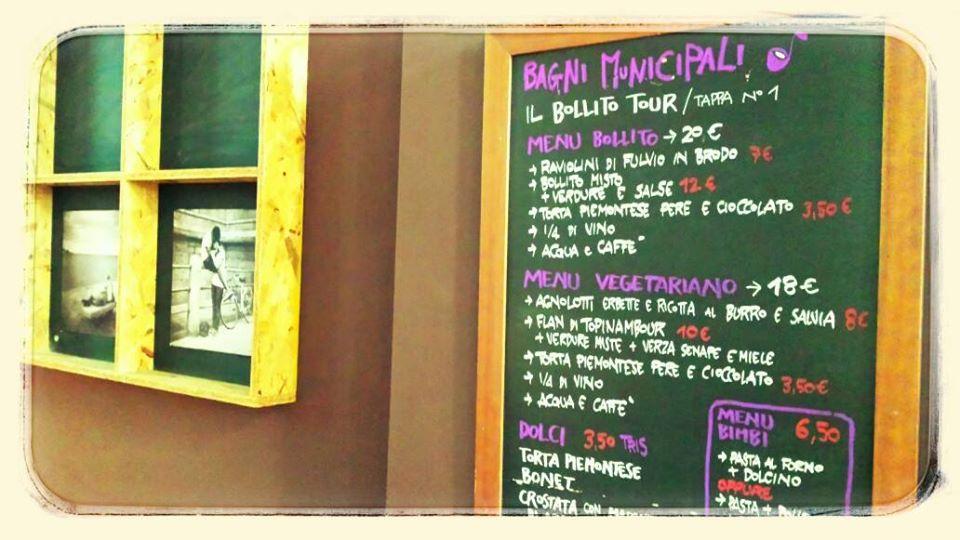 BAGNI MUNICIPALI
IL BOLLITO TOUR / TAPPA N° 1
MENU BOLLITO → 20 €
→ RAVIOLINI DI FULVIO IN BRODO 7€
→ BOLLITO MISTO
+ VERDURE E SALSE 12 €
→ TORTA PIEMONTESE PERE E CIOCCOLATO 3,50 €
→ 1/4 DI VINO
→ ACQUA E CAFFE'
MENU VEGETARIANO → 18 €
→ AGNOLOTTI ERBETTE E RICOTTA AL BURRO E SALVIA 8€
→ FLAN DI TOPINAMBOUR 10 €
+ VERDURE MISTE + VERZA SENAPE E MIELE
→ TORTA PIEMONTESE PERE E CIOCCOLATO 3,50 €
→ 1/4 DI VINO
→ ACQUA E CAFFE'
DOLCI 3,50 TRIS
TORTA PIEMONTESE
BONET
CROSTATA CON
MENU BIMBI 6,50
→ PASTA AL FORNO
+ DOLCINO
OPPURE
→ PASTA +